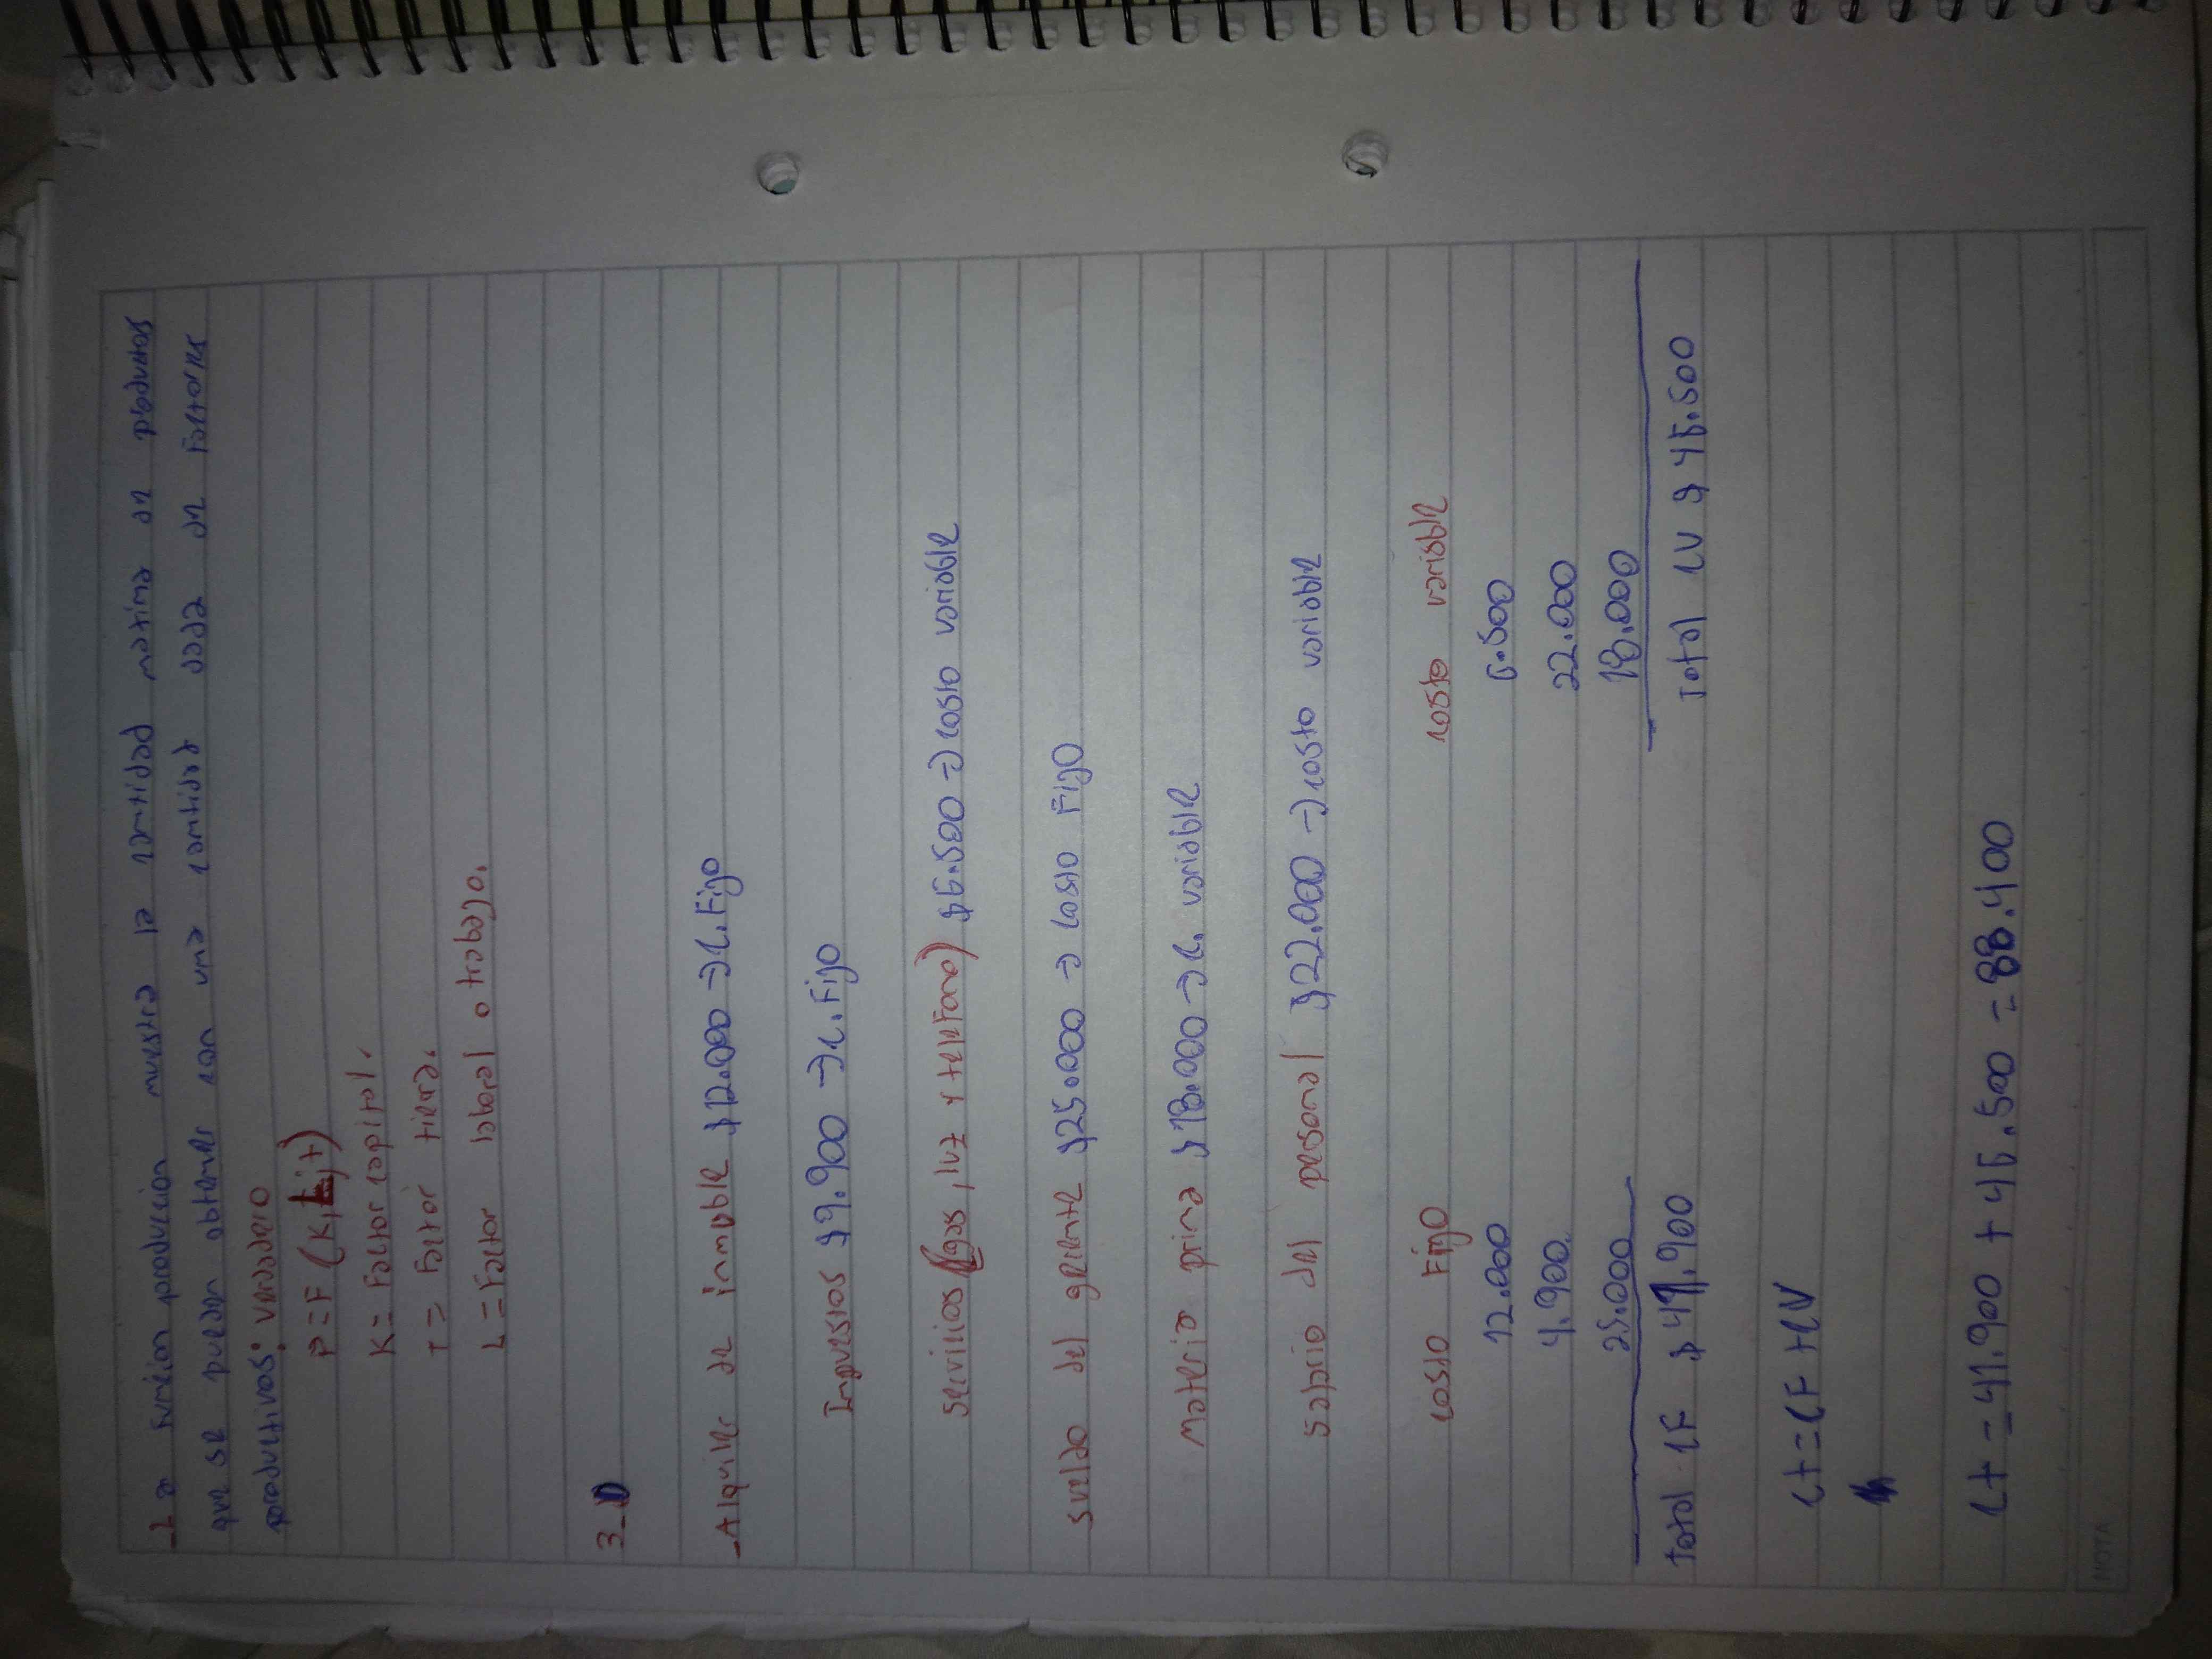 _La función produccion muestra la cantidad maxima de productos
que se pueden obtener con una cantidad dada de factores
productivos: verdadero
P=F (K,L,t)
K= Factor capital.
T= Factor tierra.
L=Factor laboral o trabajo.
3_
_Alquiler de inmueble $12.000 → C.Fijo
Impuestos $4.900 → C.Fijo
servicios (gas, luz y telefono) $6.500 → costo variable
sueldo del gerente $25.000 → costo Fijo
Materia prima $18.000 → C. variable
salario del personal $22.000 → costo variable
costo Fijo costo variable
12.000 6.500
4.900. 22.000
25.000 18.000
Total CF $41.900 Total CV $46.500
Ct=CF+CV
Ct=41.900 + 46.500 = 88.400
NOTA